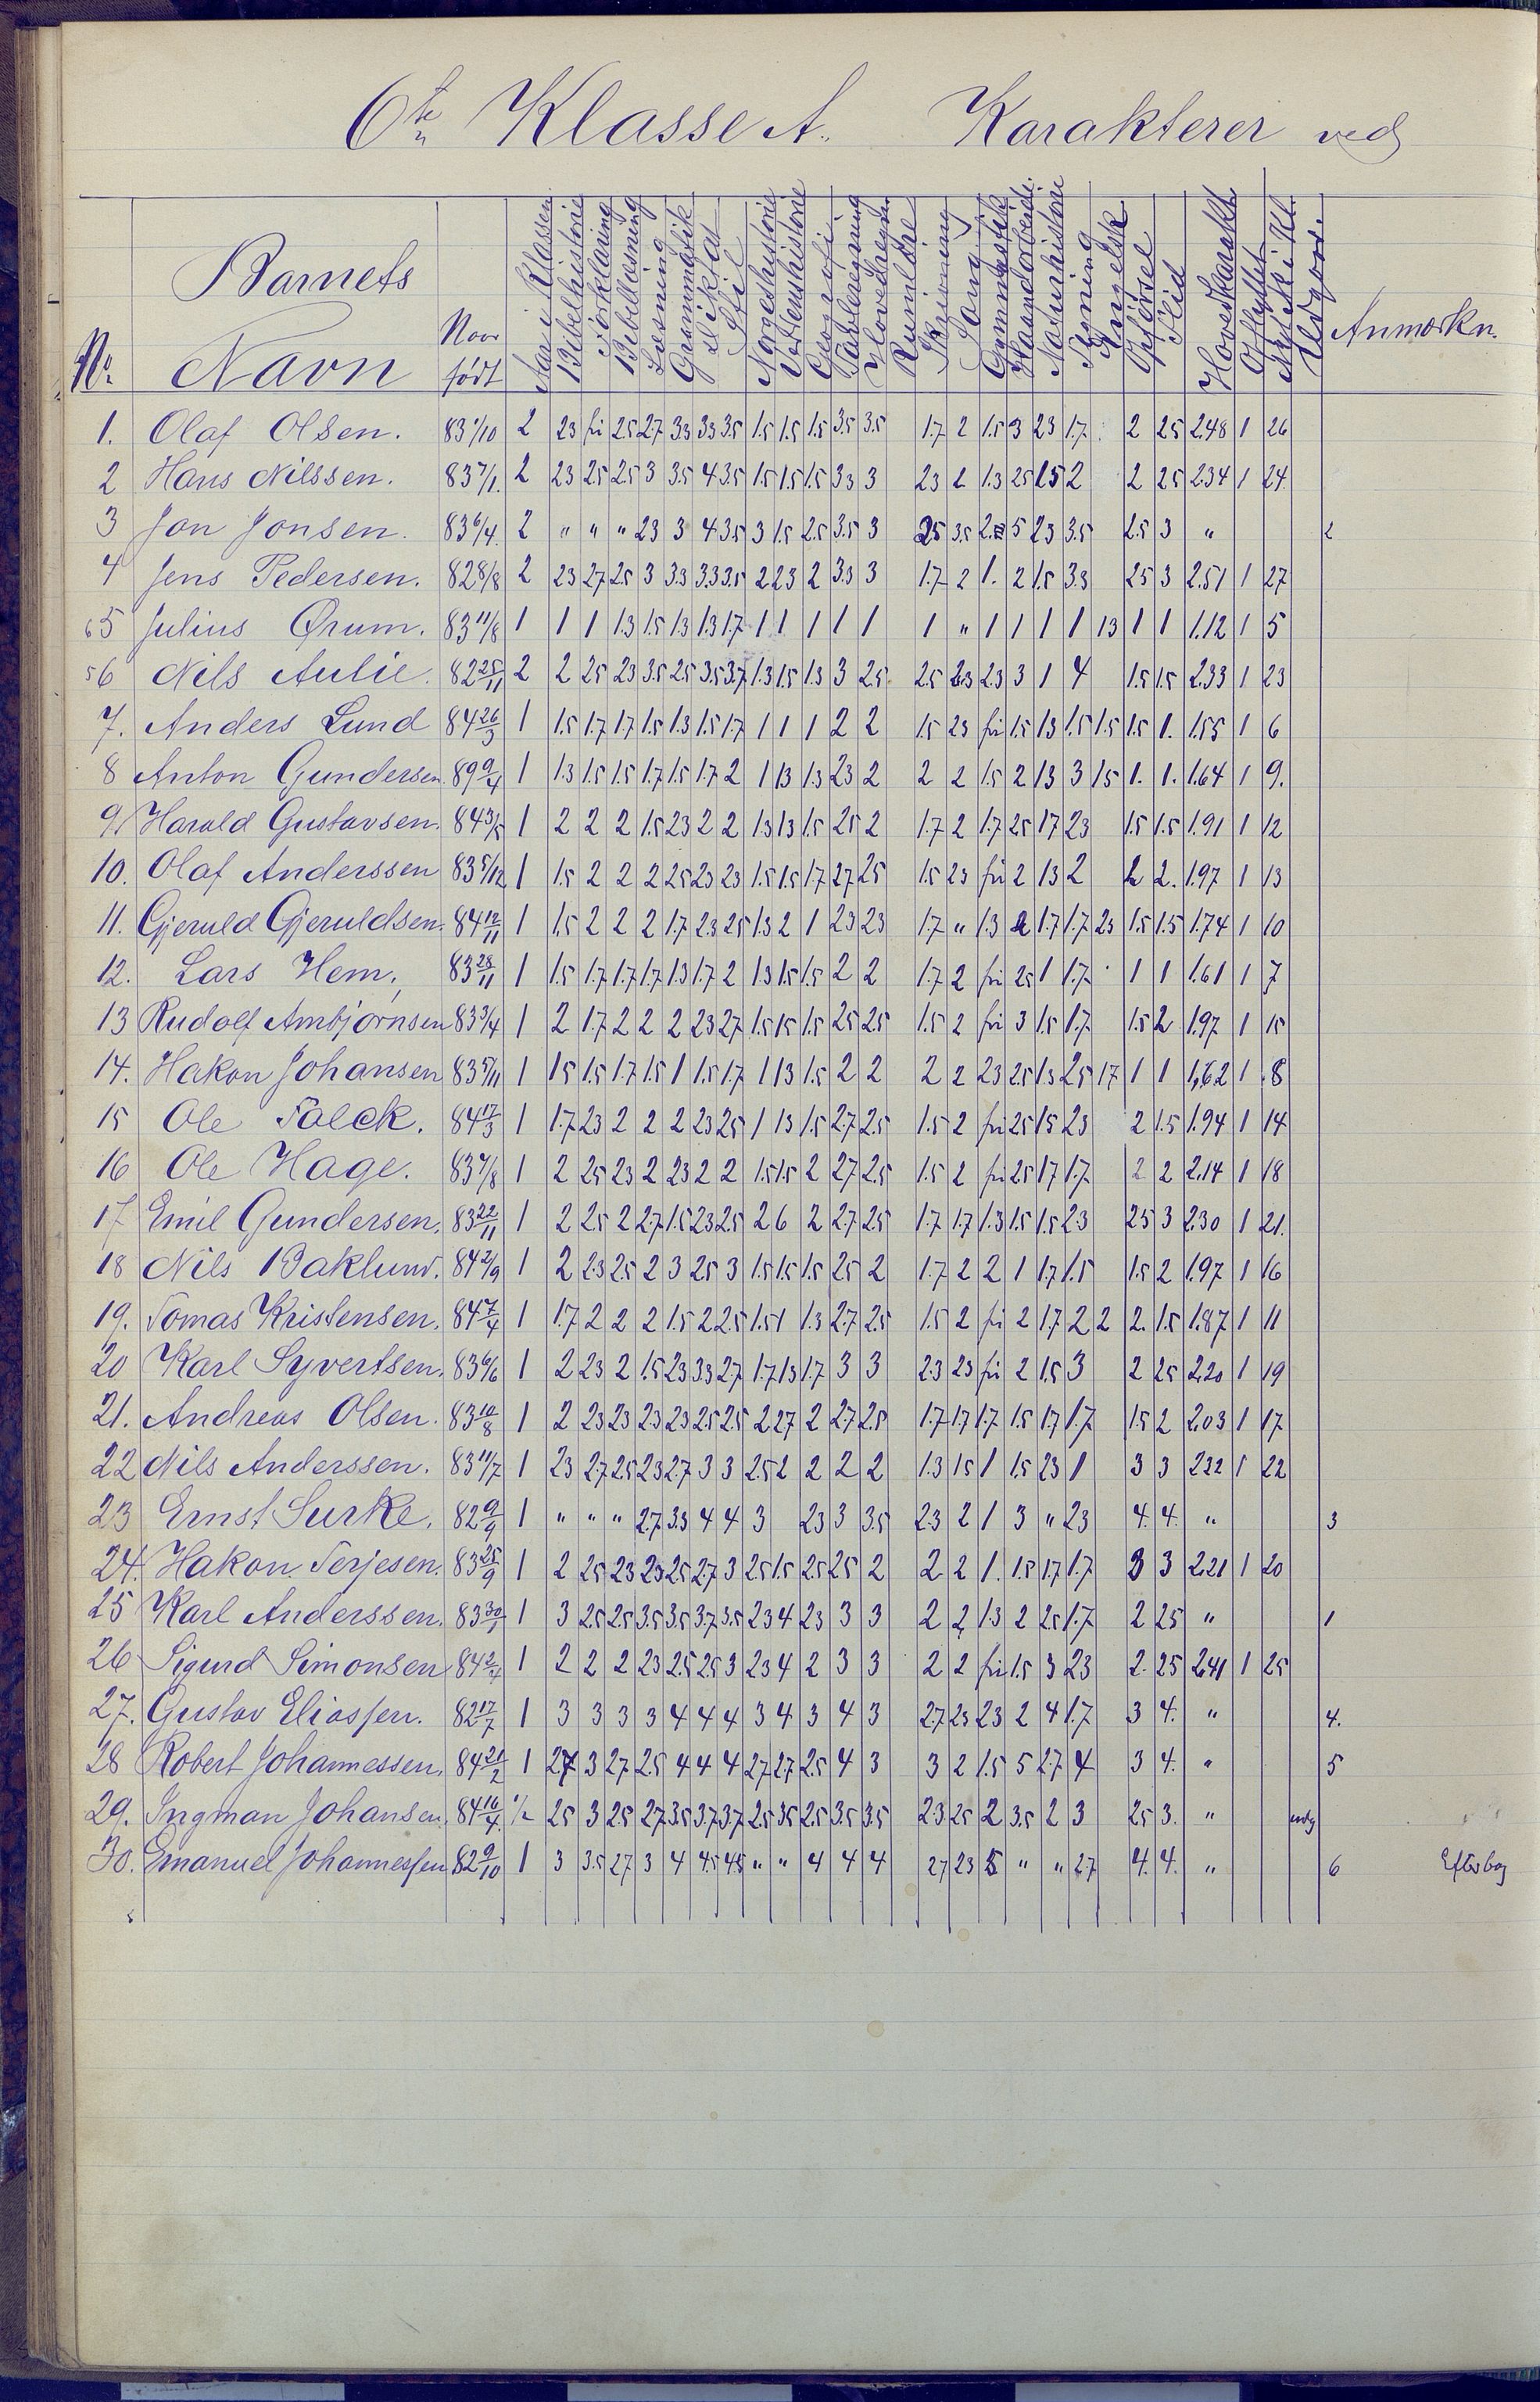 6te Klasse A. Karakterer ved
No. Barnets Navn Naar født Aar i Klassen Bibelhistorie Forklaring Bibellæsning Læsning Grammatik Diktat Stil Norgeshistorie Verdenshistorie Geografi Tavleregning Hovedregn. Rumlære Skrivning Sang Gymnastik Haandarbeide Naturhistorie Tegning Engelsk Opførsel Flid Hovedkarakt. Opflyttet Anmærkn.
1. Olaf Olsen. 83 1/10 2 23 fri 25 27 33 33 35 1.5 1.5 1.5 3.5 3.5 1.7 2 1.5 3 23 1.7 2 25 2.48 1 26
2 Hans Nilssen. 83 7/1 2 23 25 25 3 3.5 4 3.5 1.5 1.5 1.5 33 3 23 2 1.3 25 15 2 2 25 2.34 1 24
3 Jon Jonsen. 83 6/4 2 " " " 23 3 4 3.5 3 1.5 2.5 3.5 3 25 3.5 2 5 23 3.5 2.5 3 " 2
4 Jens Pedersen. 82 8/8 2 23 27 25 3 33 33 35 2 23 2 33 3 1.7 2 1. 2 1.5 33 25 3 2.51 1 27
65 Julius Ørum. 83 11/8 1 1 1 1.3 1.5 13 1.3 1.7 1 1 1 1 1 1 " 1 1 1 1 13 1 1 1.12 1 5
56 Nils Aulie. 82 25/11 2 2 25 23 3.5 25 3.5 3.7 1.3 1.5 1.3 3 25 25 23 23 3 1 4 1.5 1.5 2.33 1 23
7. Anders Lund 84 26/3 1 1.5 1.7 17 1.5 1.3 1.5 1.7 1 1 1 2 2 1.5 23 fri 1.5 13 1.5 1.5 1.5 1. 1.55 1 6
8 Anton Gundersen. 89 9/4 1 1.3 1.5 1.5 1.7 1.5 1.7 2 1 13 1.3 23 2 2 2 1.5 2 13 3 15 1. 1. 1.64 1 9.
9. Harald Gustavsen. 84 3/5 1 2 2 2 1.5 23 2 2 13 13 1.5 25 2 1.7 2 1.7 25 17 23 1.5 1.5 1.91 1 12
10. Olaf Anderssen 83 5/12 1 1.5 2 2 2 25 23 23 1.5 1.5 17 27 25 1.5 23 fri 2 13 2 2 2. 1.97 1 13
11. Gjeruld Gjeruldsen. 84 12/11 1 1.5 2 2 2 1.7 23 25 13 2 1 23 23 1.7 " 1.3 2 1.7 1.7 23 1.5 1.5 1.74 1 10
12. Lars Hem. 83 28/11 1 1.5 1.7 1.7 1.7 1.3 1.7 2 1.3 1.5 1.5 2 2 1.7 2 fri 25 1 1.7 1 1 1.61 1 7
13 Rudolf Ambjørnsen 83 3/4 1 2 1.7 2 2 2 23 27 1.5 15 1.5 25 25 1.5 2 fri 3 1.5 1.7 1.5 2 1.97 1 15
14. Hakon Johansen 83 5/11 1 15 1.5 17 1.5 1 1.5 1.7 1 13 1.5 2 2 2 2 23 25 13 25 17 1 1 1,62 1 8
15 Ole Falck. 84 17/3 1 1.7 23 2 2 2 23 25 1 13 1.5 2.7 2.5 1.5 2 fri 25 15 23 2 1.5 1.94 1 14
16 Ole Hage. 83 7/8 1 2 25 23 2 23 2 2 1.5 1.5 2 27 25 1.5 2 fri 25 17 1.7 2 2 2.14 1 18
17 Emil Gundersen. 83 22/11 1 2 25 2 27 1.5 23 25 2 6 2 2.7 25 1.7 1.7 1.3 1.5 1.5 23 25 3 2.30 1 21.
18 Nils Baklund. 84 2/9 1 2 23 25 2 3 25 3 1.5 1.5 1.5 25 2 1.7 2 2 1 1.7 1.5 1.5 2 1.97 1 16
19. Tomas Kristensen. 84 7/4 1 1.7 2 2 2 1.5 2 25 1.5 1 1.3 2.7 2.5 1.5 2 fri 2 1.7 2 2 2. 1.5 1.87 1 11
20 Karl Syvertsen. 83 6/6 1 2 23 2 1.5 23 33 27 1.7 13 1.7 3 3 23 23 fri 2 1.5 3 2 25 2.20 1 19
21. Andreas Olsen. 83 10/8 1 2 23 23 23 23 25 25 2 27 2 27 25 1.7 17 1.7 1.5 17 1.7 1.5 2 2.03 1 17
22 Nils Anderssen. 83 11/7 1 23 27 25 23 27 3 3 25 2 2 2 2 1.3 15 1 1.5 23 1 3 3 2.22 1 22
23 Ernst Surke. 82 9/9 1 " " " 27 33 4 4 3 23 3 3.5 23 2 1 3 " 23 4. 4. " 3
24. Hakon Terjesen. 83 25/9 1 2 25 23 23 25 27 3 25 1.5 25 25 2 2 2 1. 1.5 1.7 1.7 3 3 2.21 1 20
25 Karl Anderssen. 83 30/1 1 3 25 25 3.5 3.5 3.7 3.5 23 4 23 3 3 2 2 13 2 25 1.7 2 25 " 1
26 Sigurd Simonsen 84 2/4 1 2 2 2 23 25 25 3 23 4 2 3 3 2 2 fri 1.5 3 23 2. 25 2.41 1 25
27. Gustav Eliassen. 82 17/7 1 3 3 3 3 4 4 4 3 4 3 4 3 27 23 23 2 4 1.7 3 4. " 4.
28 Robert Johannessen. 84 21/2 1 27 3 27 25 4 4 4 27 27 25 4 3 3 2 1.5 5 27 4 3 4. " 5
29. Ingman Johansen. 84 16/4 1/2 25 3 25 27 3.5 3.7 3.7 25 35 25 3.5 3.5 23 25 2 3.5 2 3 25 3. " udg
30. Emanuel Johannessen 82 9/10 1 3 3.5 27 3 4 4.5 4.5 " " 4 4 4 27 23 5 " " 27 4. 4. " 6